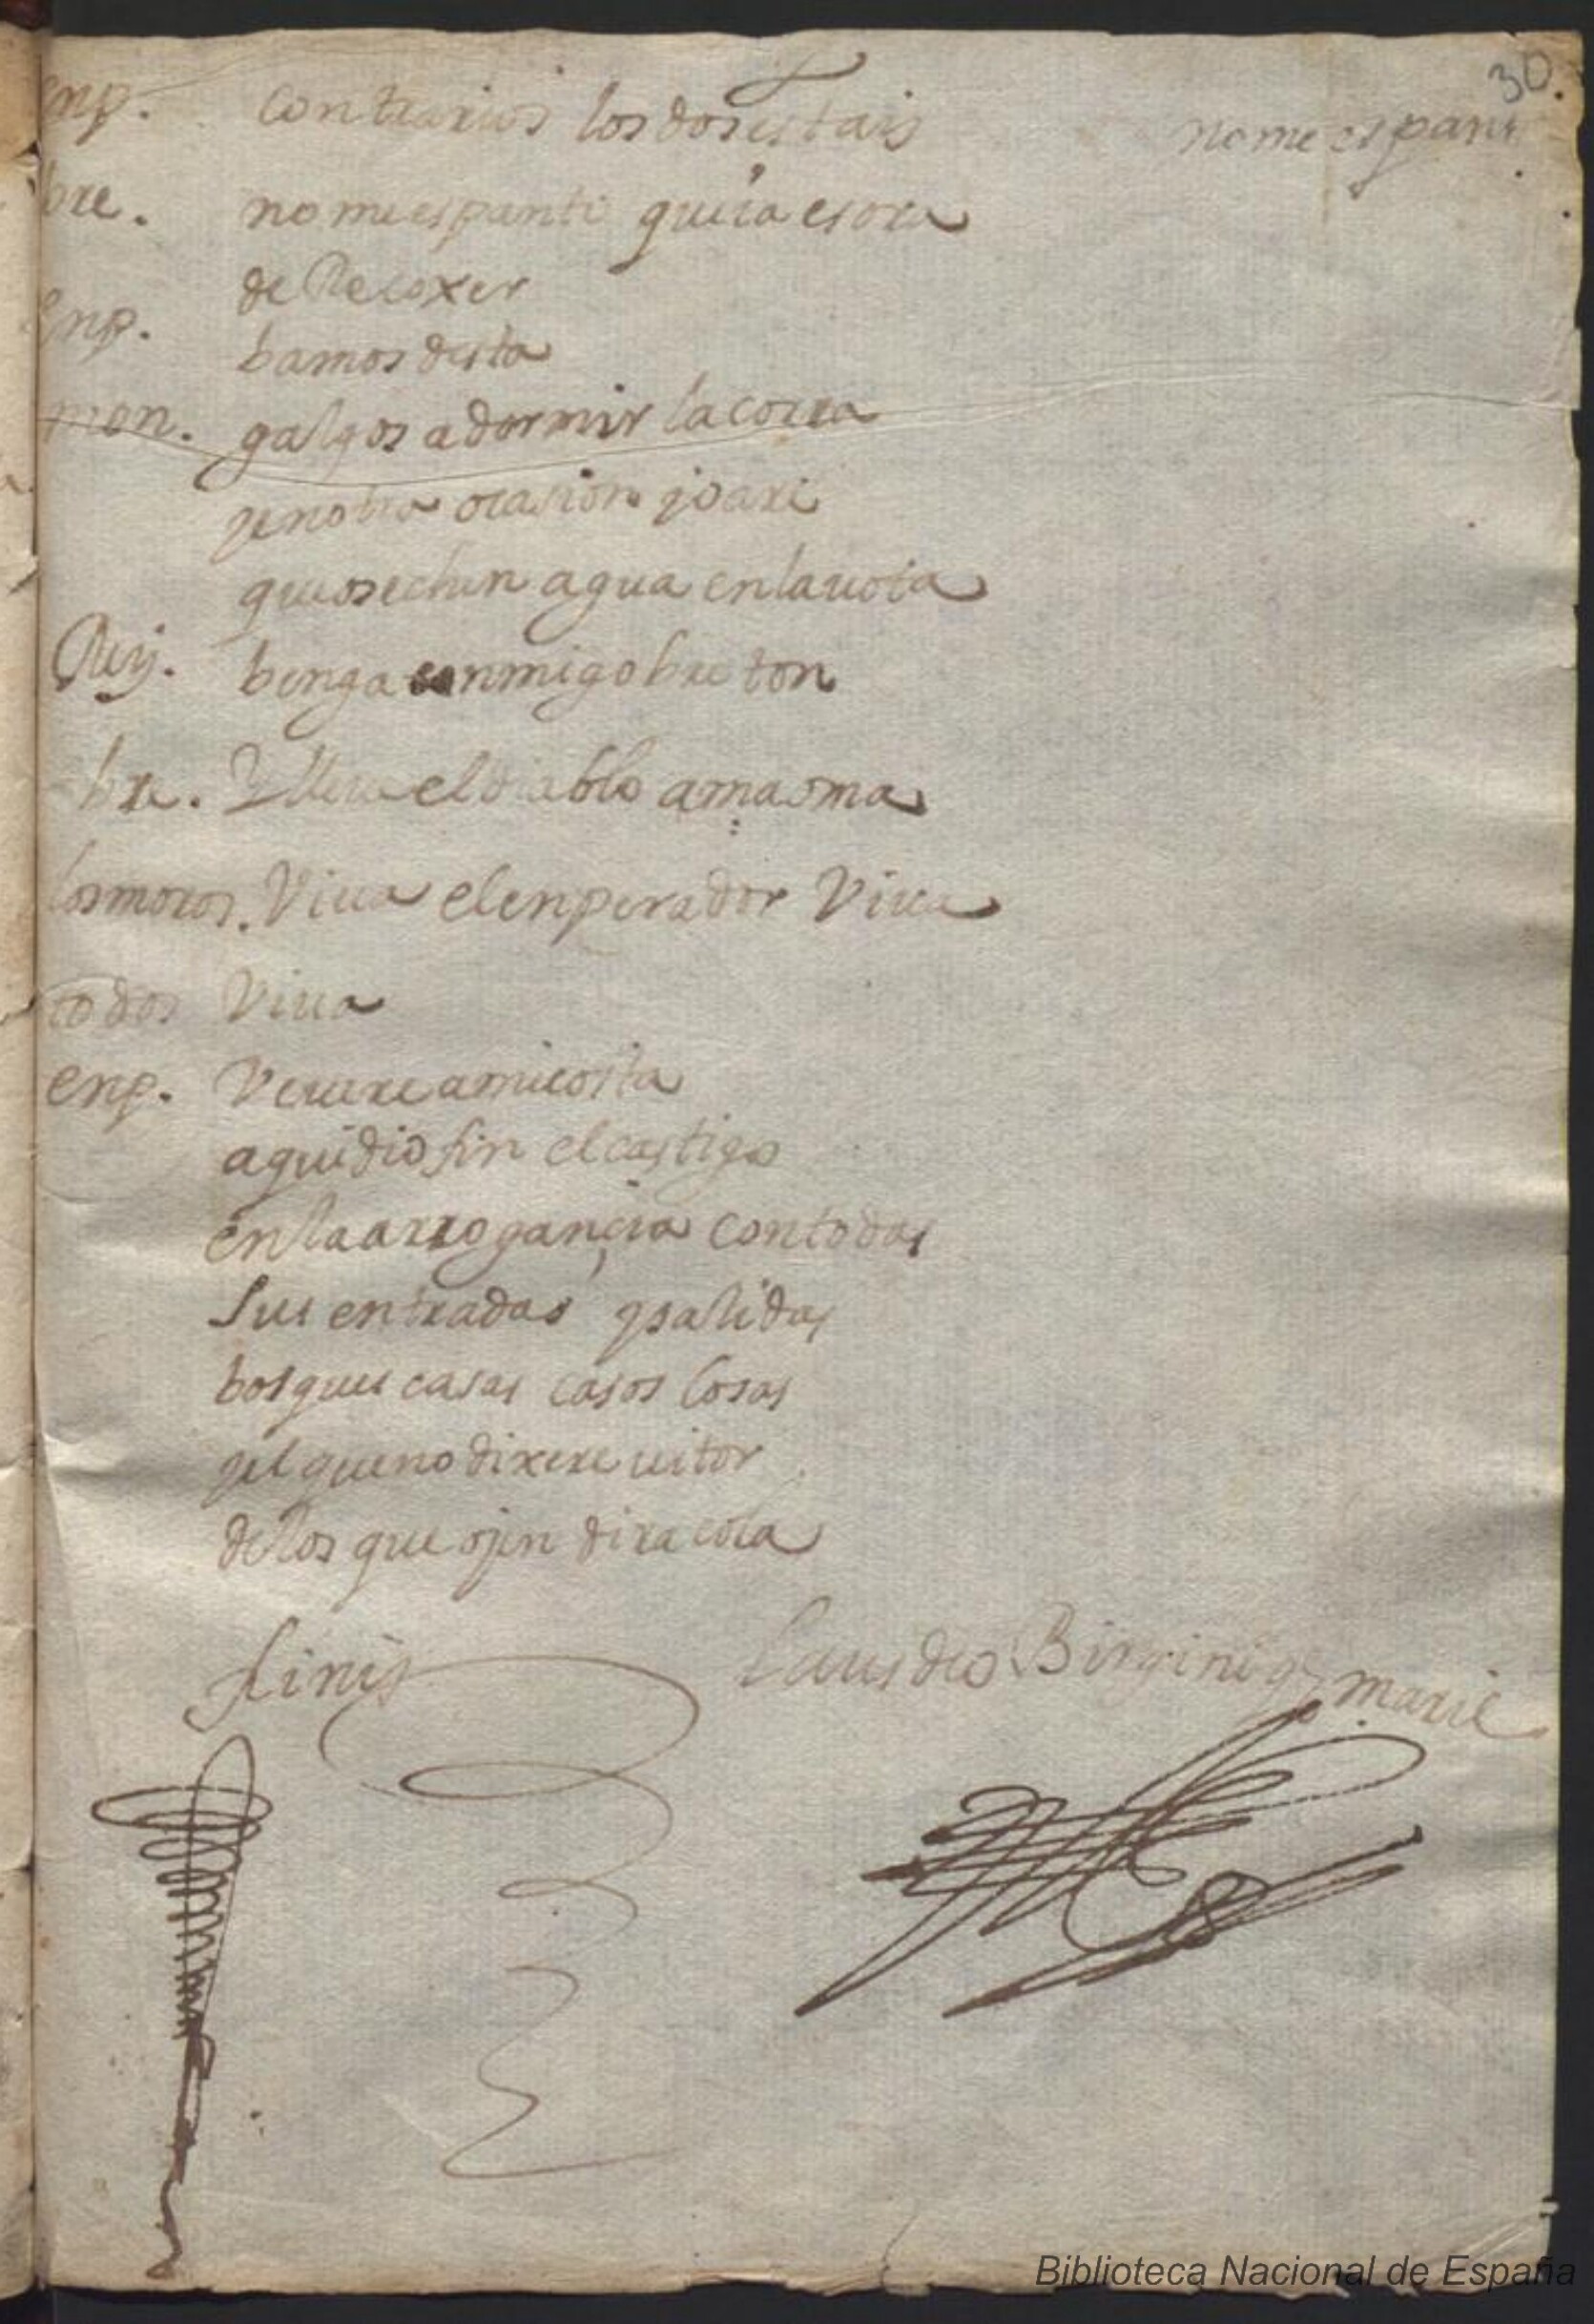 30.
enp. contrarios los dos estais
no me espant
bre. no me espanti quia es ora
de Recoxer
enp. bamos desta
mon. galgos a dormir la corra
yenotra ocasion yo are
que os echen agua en la uota
Rey. benga conmigo bre ton
bre. Y lleue el diablo a maoma
los moros. Viua el enperador Viua
todos Viua
enp. Viuire a mi costa
aqui dio fin el castigo
en la arrogançia con todas
sus entradas y salidas
bosques casas casos cosas
y el que no dixere uitor
de los que oyen dira cola
finis
Laus deo Birgini q marie
Biblioteca Nacional de España